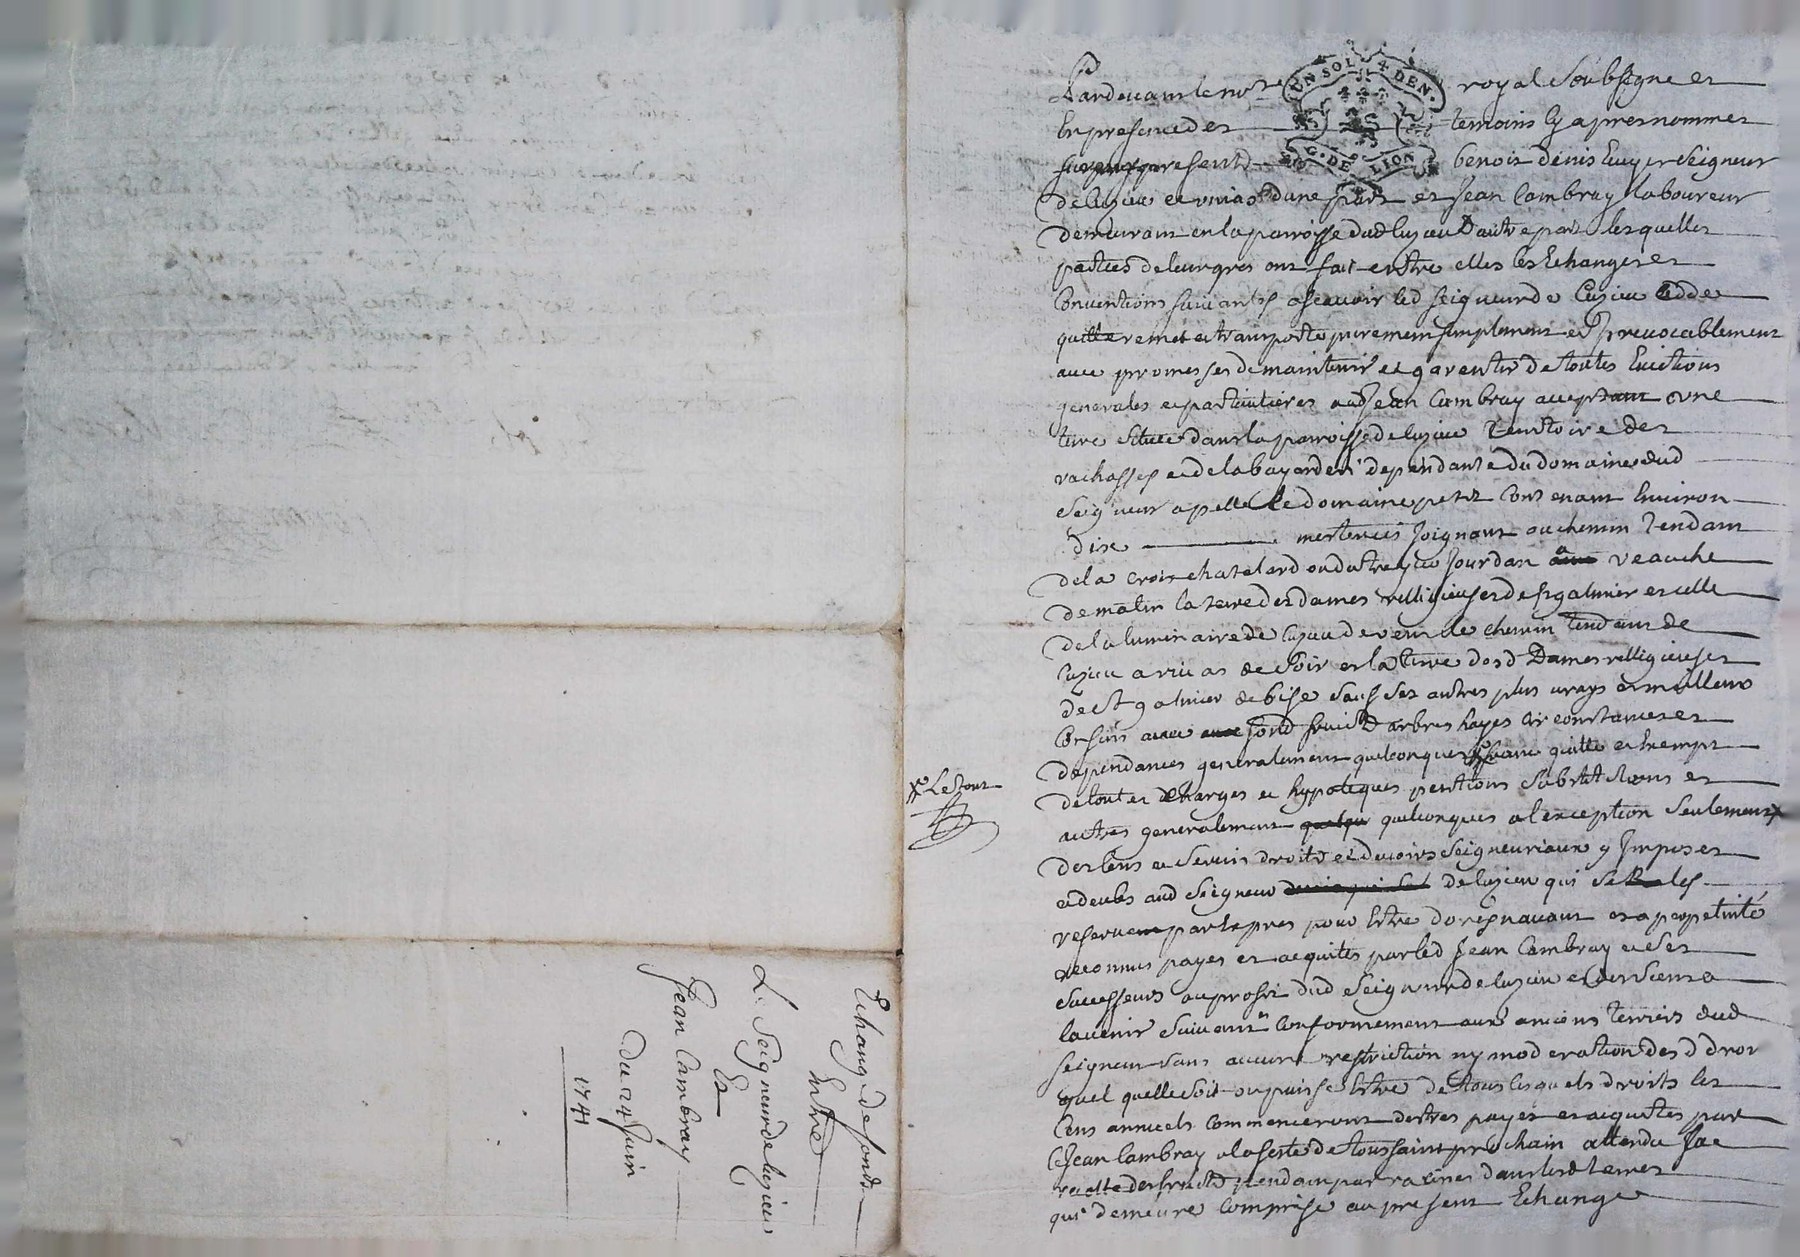 Echange de fonds
Entre
Le Seigneur de Cuzieu
Et
Jean Cambray
Du 24 Juin
1741
Pardevant le nore royal soubsigne et
En presence des temoins cy apres nommes
present benoit denis Ecuyer Seigneur
de Cuzieu et unias d'une part et Jean Cambray laboureur
demeurant en la parroisse dud Cuzieu d'autre part lesquelles
parties de leur gres ont fait entre elles les Echanges et
Conventions suivantes ascavoir led seigneur de Cuzieu cedde
quitte remet et transporte purement simplement et Irrevocablement
avec promesses de maintenir et garentir de toutes Evictions
generales et particulieres aud Jean Cambray acceptant une
terre située dans la parroisse de Cuzieu Territoire des
vachasses et de la bayarden dependante du domaine dud
Seigneur apellé Le domaine petit Contenant Environ
dix mesterees Joignant au chemin Tendant
de la croix chatelard Jourdan a veauche
de matin la terre des dames relligieuses de st galmier et celle
de la luminaire de Cuzieu de vent le chemin Tendant de
Cuzieu a rivas de soir et la terre desd Dames relligieuses
de St galmier de bise sauf ses autres plus vrays et meilleurs
Confins avec fond fruits arbres hayes circonstances et
dependances generalement quelconques franc quitte et Exempt
de toutes charges et hypoteques pentions substitutions et
autres generalement quelconques a l'exception seulement
des Cens et servis droits et devoirs Seigneuriaux y Imposes
et deubs aud Seigneur de Cuzieu qui se les
reserve par Expres pour Estre dorésnavant et a perpetuité
reconnus payes et acquites par led Jean Cambray et ses
successeurs au profit dud Seigneur de Cuzieu et des siens a
l'avenir suivant et Conformement aux anciens terriers dud
seigneur sans aucune restriction ny moderation desd droits
quel quelle soit ou puisse Estre de tous lesquels droits les
Cens annuels Commenceront destres payés et acquittes par
Jean Cambray a la feste de toussaint prochain attendu la
recolte des fruits pendant par racines dans lesd terres
qui demeure Comprise au present Echange